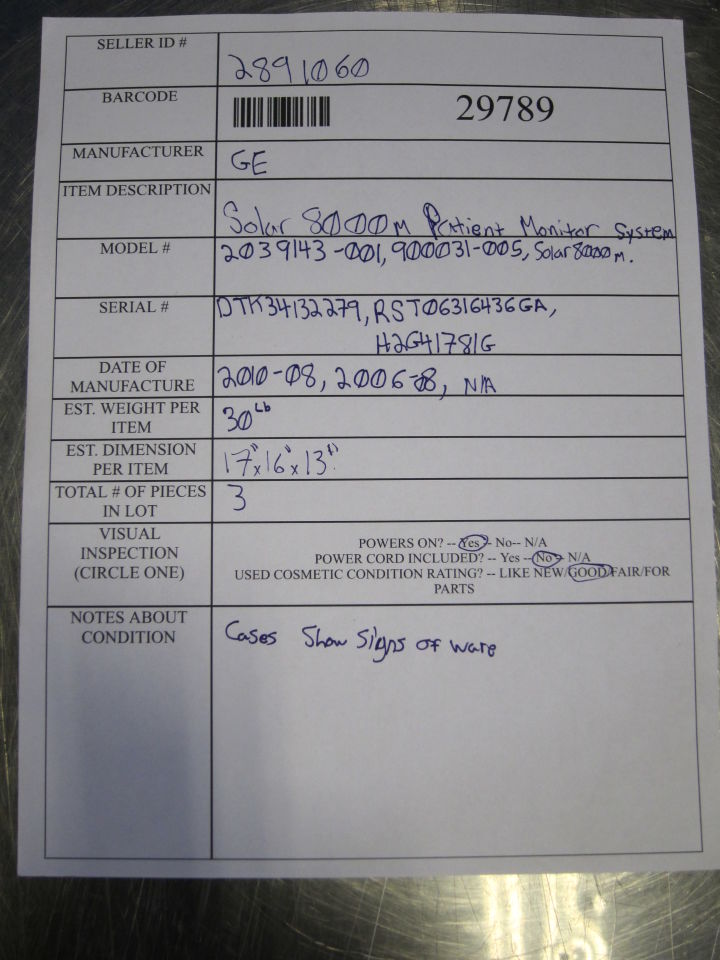 SELLER ID # 2891060
BARCODE 29789
MANUFACTURER GE
ITEM DESCRIPTION Solar 8000 M Patient Monitor System
MODEL # 2039143-001, 900031-005, Solar 8000 M.
SERIAL # DTK34132279, RST06316436GA,
H2G41781G
DATE OF
MANUFACTURE 2010-08, 2006-08, N/A
EST. WEIGHT PER
ITEM 30 Lb
EST. DIMENSION
PER ITEM 17" x 16" x 13"
TOTAL # OF PIECES
IN LOT 3
VISUAL
INSPECTION
(CIRCLE ONE)
POWERS ON? -- Yes -- No-- N/A
POWER CORD INCLUDED? -- Yes -- No -- N/A
USED COSMETIC CONDITION RATING? -- LIKE NEW/GOOD/FAIR/FOR
PARTS
NOTES ABOUT
CONDITION
Cases Show Signs of ware